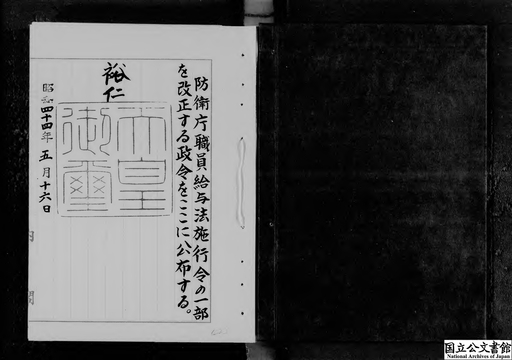 防衛庁職員給与法施行令の一部
を改正する政令をここに公布する。
裕仁
天皇
御璽
昭和四十四年五月十六日
内閣
国立公文書館
National Archives of Japan